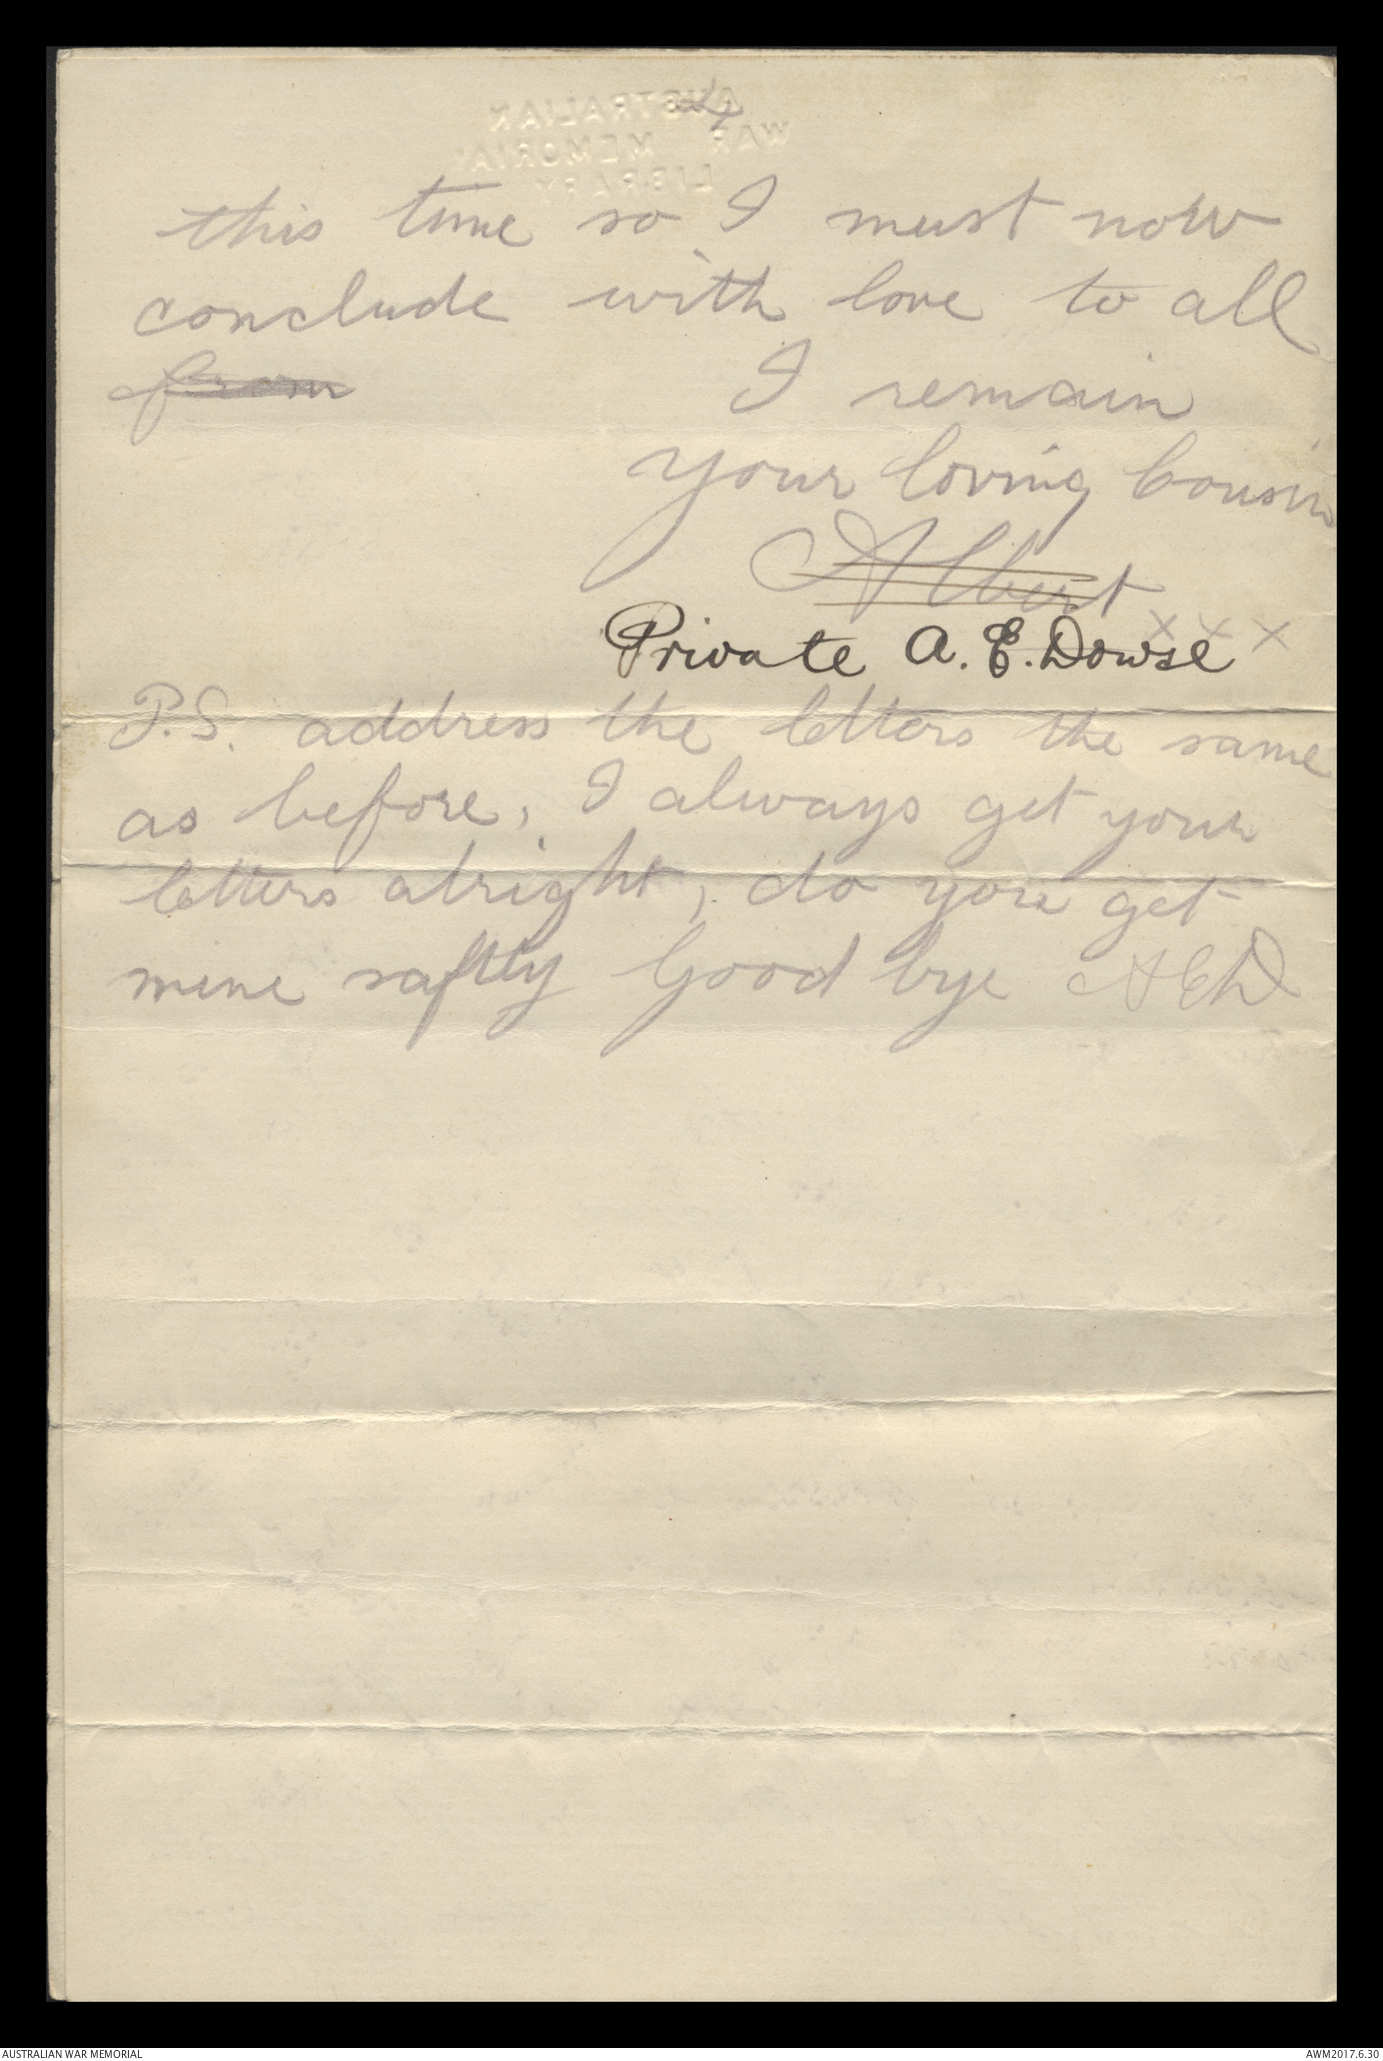 4
AUSTRALIAN
WAR MEMORIAL
LIBRARY
this time so I must now
conclude with love to all
from
I remain
your loving Cousin
Albert
x x x
Private A. E. Dowse
P.S. address the letters the same
as before, I always get your
letters alright, do you get
mine saftly Good bye AED
AUSTRALIAN WAR MEMORIAL
AWM2017.6.30